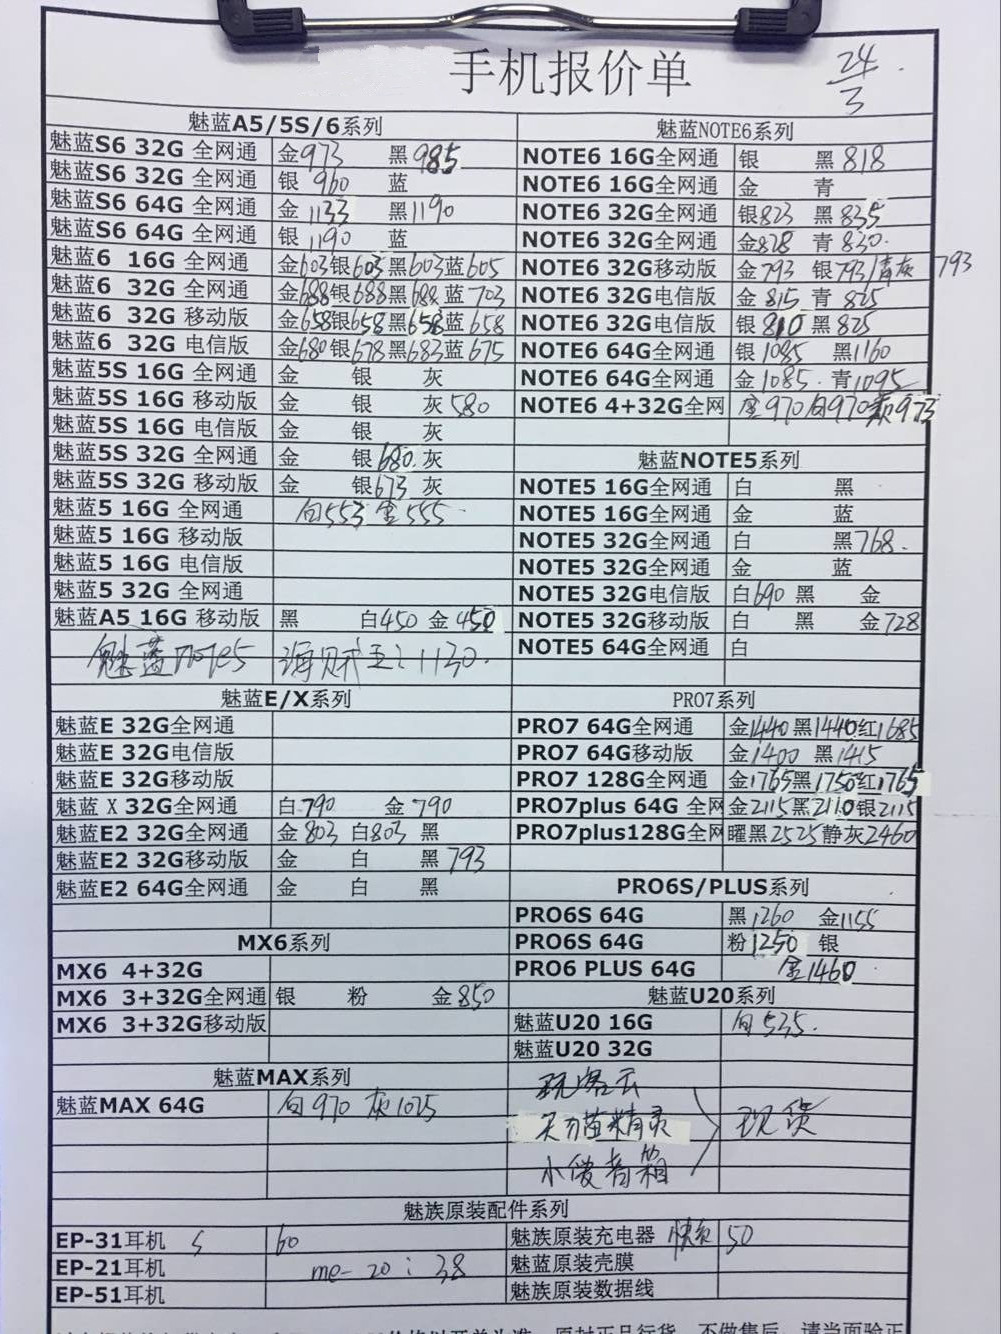 手机报价单
24/3
魅蓝A5/5S/6系列
魅蓝S6 32G 全网通 金973 黑985
魅蓝S6 32G 全网通 银960 蓝
魅蓝S6 64G 全网通 金1133 黑1190
魅蓝S6 64G 全网通 银1190 蓝
魅蓝6 16G 全网通 金603银603黑603蓝605
魅蓝6 32G 全网通 金688银688黑688蓝703
魅蓝6 32G 移动版 金658银658黑658蓝658
魅蓝6 32G 电信版 金680银678黑683蓝675
魅蓝5S 16G 全网通 金 银 灰
魅蓝5S 16G 移动版 金 银 灰580
魅蓝5S 16G 电信版 金 银 灰
魅蓝5S 32G 全网通 金 银680 灰
魅蓝5S 32G 移动版 金 银673 灰
魅蓝5 16G 全网通 白553 金555
魅蓝5 16G 移动版
魅蓝5 16G 电信版
魅蓝5 32G 全网通
魅蓝A5 16G 移动版 黑 白450 金450
魅蓝note5 海贼王:1130.
魅蓝NOTE6系列
NOTE6 16G全网通 银 黑818
NOTE6 16G全网通 金 青
NOTE6 32G全网通 银823 黑835
NOTE6 32G全网通 金828 青830.
NOTE6 32G移动版 金793 银793/青灰793
NOTE6 32G电信版 金815 青825
NOTE6 32G电信版 银810 黑825
NOTE6 64G全网通 银1085 黑1160
NOTE6 64G全网通 金1085. 青1095
NOTE6 4+32G全网 金970 白970 973
魅蓝NOTE5系列
NOTE5 16G全网通 白 黑
NOTE5 16G全网通 金 蓝
NOTE5 32G全网通 白 黑768.
NOTE5 32G全网通 金 蓝
NOTE5 32G电信版 白690 黑 金
NOTE5 32G移动版 白 黑 金728
NOTE5 64G全网通 白
魅蓝E/X系列
魅蓝E 32G全网通
魅蓝E 32G电信版
魅蓝E 32G移动版
魅蓝X 32G全网通 白790 金790
魅蓝E2 32G全网通 金803 白803 黑
魅蓝E2 32G移动版 金 白 黑793
魅蓝E2 64G全网通 金 白 黑
PRO7系列
PRO7 64G全网通 金1440黑1440红1685
PRO7 64G移动版 金1400 黑1415
PRO7 128G全网通 金1765黑1750红1765
PRO7plus 64G 全网 金2115黑2110银2115
PRO7plus128G全网 曜黑2525静灰2460
PRO6S/PLUS系列
PRO6S 64G 黑1260 金1155
PRO6S 64G 粉1250 银
PRO6 PLUS 64G 金1460
MX6系列
MX6 4+32G
MX6 3+32G全网通 银 粉 金850
MX6 3+32G移动版
魅蓝U20系列
魅蓝U20 16G 白535.
魅蓝U20 32G
魅蓝MAX系列
魅蓝MAX 64G 白970 灰1025
玩客云
天猫精灵
小傻音箱
现货
魅族原装配件系列
EP-31耳机 60
EP-21耳机 me-20:38
EP-51耳机
魅族原装充电器 快充 50
魅蓝原装壳膜
魅族原装数据线